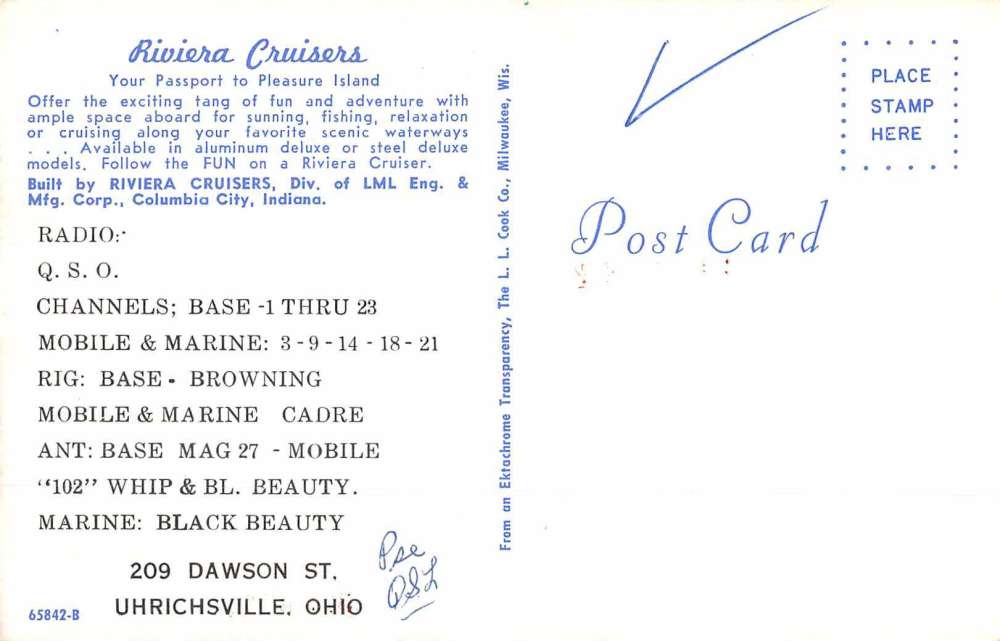 Riviera Cruisers
Your Passport to Pleasure Island
Offer the exciting tang of fun and adventure with
ample space aboard for sunning, fishing, relaxation
or cruising along your favorite scenic waterways
. . . Available in aluminum deluxe or steel deluxe
models. Follow the FUN on a Riviera Cruiser.
Built by RIVIERA CRUISERS, Div. of LML Eng. &
Mfg. Corp., Columbia City, Indiana.
RADIO:
Q. S. O.
CHANNELS; BASE -1 THRU 23
MOBILE & MARINE: 3 - 9 - 14 - 18 - 21
RIG: BASE - BROWNING
MOBILE & MARINE CADRE
ANT: BASE MAG 27 - MOBILE
"102" WHIP & BL. BEAUTY.
MARINE: BLACK BEAUTY
209 DAWSON ST.
UHRICHSVILLE, OHIO
Pse
QSL
65842-B
From an Ektachrome Transparency, The L. L. Cook Co., Milwaukee, Wis.
Post Card
PLACE
STAMP
HERE